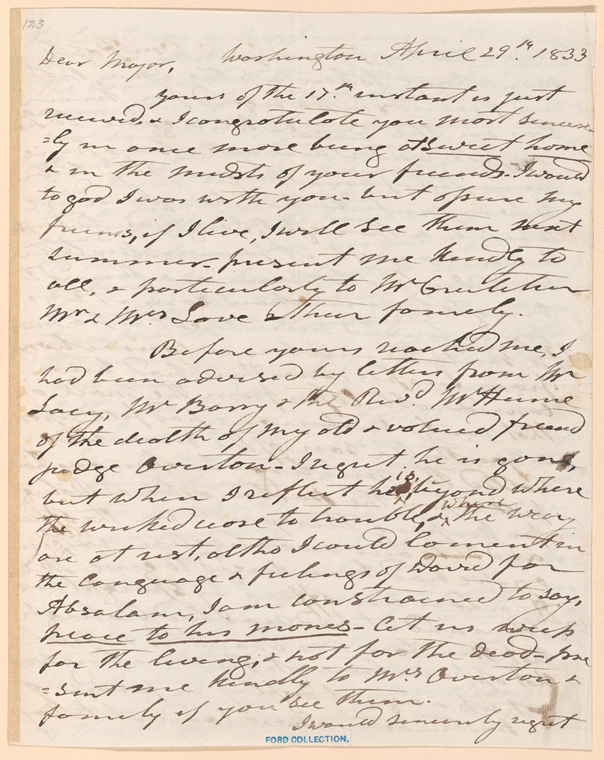 123
Dear Major, Washington April 29th. 1833
yours of the 17th instant is just
received, & I congratulate you most sincere
=ly in once more being at sweet home
& in the midst of your friends. I would
to god I was with you - but assure my
friends, if I live, I will see them next
summer - present me kindly to
all, & particularly to Mr Crutcher
Mr & Mrs Love & their family.
Before yours reached me, I
had been advised by letters from Mr
Lacy, Mr Barry & the Revd. Mr Hume
of the death of my old & valued friend
judge Overton - I regret he is gone,
but when I reflect he is beyond where
the wicked cease to trouble, & where the weary
are at rest, altho I could lament in
the language & feelings of David for
Absalam, I am constrained to say,
peace to his manes - let us weep
for the living, & not for the dead - pre
=sent me kindly to Mrs Overton &
family if you see them.
I would sincerely regret
FORD COLLECTION.